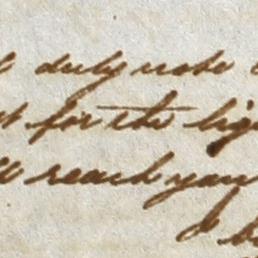 duly note
for the
reach you
I